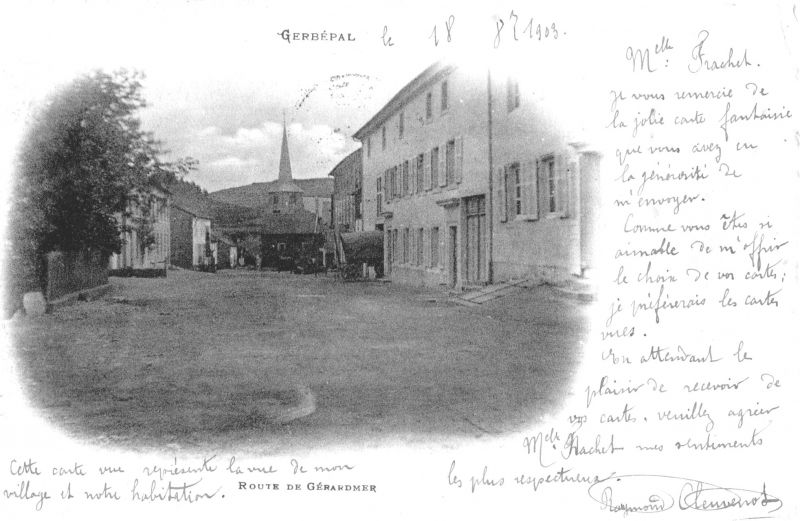 GERBÉPAL le 18 8re 1903.
Melle Frachet.
je vous remercie de
la jolie carte fantaisie
que vous avez eu
la générosité de
m'envoyer.
Comme vous êtes si
aimable de m'offrir
le choix de vos cartes;
je préfèrerais les cartes
vues.
En attendant le
plaisir de recevoir de
vos cartes. veuillez agréer
Melle Frachet mes sentiments
les plus respectueux.
Raymond
Cette carte vue représente la vue de mon
village et notre habitation.
ROUTE DE GÉRARDMER